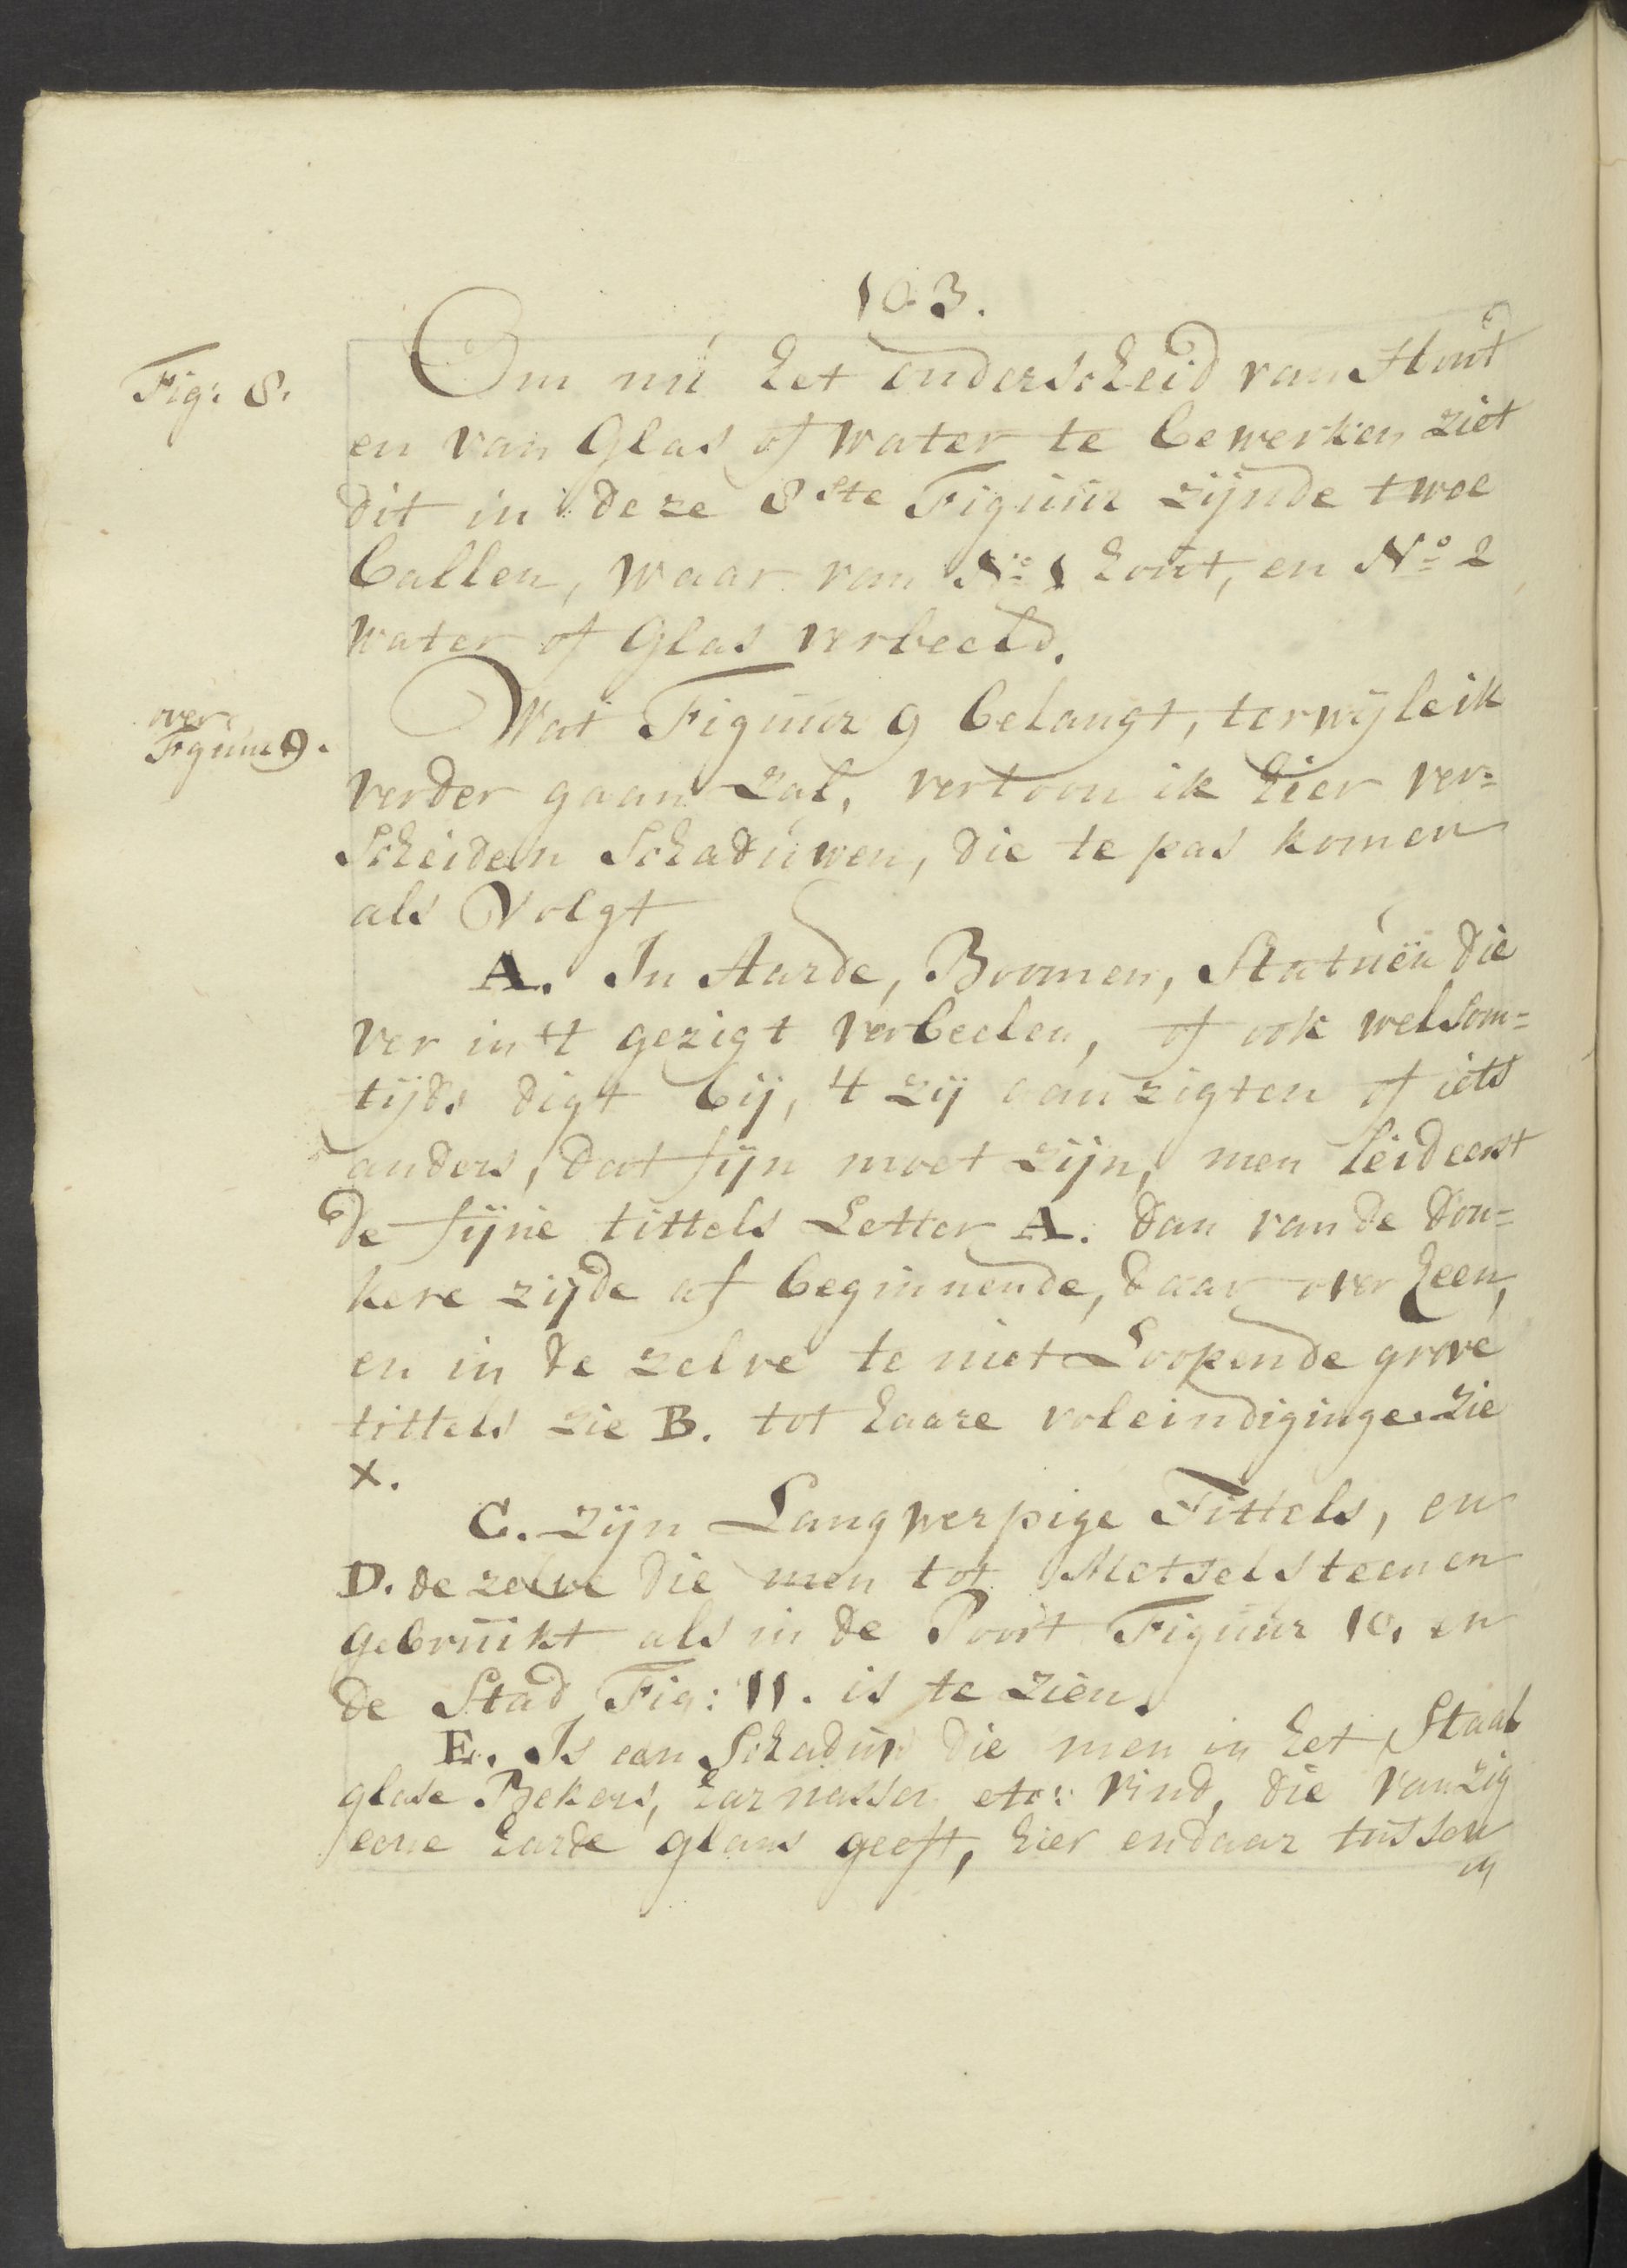 103.
Fig: 8.
Om nú het onderscheid van Hout
en van Glas of Water te bewerken ziet
dit in deze 8ste Figuúr zijnde twee
ballen, waar van No 1 hout, en No 2
water of Glas verbeeld.
over
Figuur 9.
Wat Figuúr 9 belangt, terwijl ik
verder gaan zal, vertoon ik hier ver=
scheiden Schadúwen, die te pas komen
als Volgt
A. In Aarde, Boomen, Statúën die
ver in 't gezigt verbeelen, of ook wel som=
tijds digt bij, 't zij aanzigten of iets
anders, dat fijn moet zijn, men leid eerst
de fijne tittels Letter A. dan van de don=
kere zijde af beginnende, daar over heen,
en in de zelve te niet Loopende grove
tittels zie B. tot haare voleindiginge. Zie
X.
C. zijn Langwerpige Tittels, en
D. de zelve die men tot Metselsteenen
gebruikt als in de Poort Figuúr 10, en
de Stad Fig: 11. is te zien.
E. Is een Schadúw die men in het Staal
glase Bekers, harnassen etc: vind, die van zig
eene harde glans geeft, hier en daar tússen
in